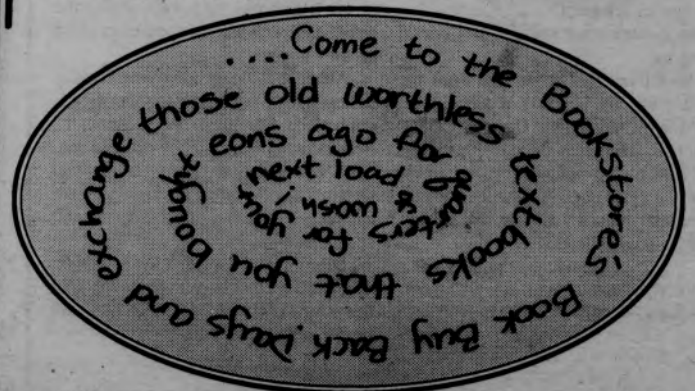 ....Come to the Bookstore's Book Buy Back Days and exchange those old worthless textbooks that you bought eons ago for quarters for your next load of wash!